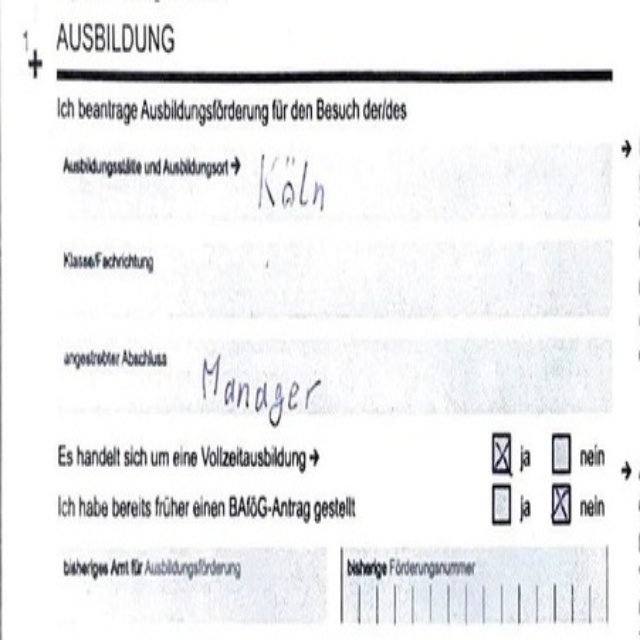 1
+ AUSBILDUNG
Ich beantrage Ausbildungsförderung für den Besuch der/des
Ausbildungsstätte und Ausbildungsort → Köln
Klasse/Fachrichtung
angestrebter Abschluss
Manager
Es handelt sich um eine Vollzeitausbildung → ☒ ja ☐ nein
Ich habe bereits früher einen BAföG-Antrag gestellt ☐ ja ☒ nein
bisheriges Amt für Ausbildungsförderung bisherige Förderungsnummer